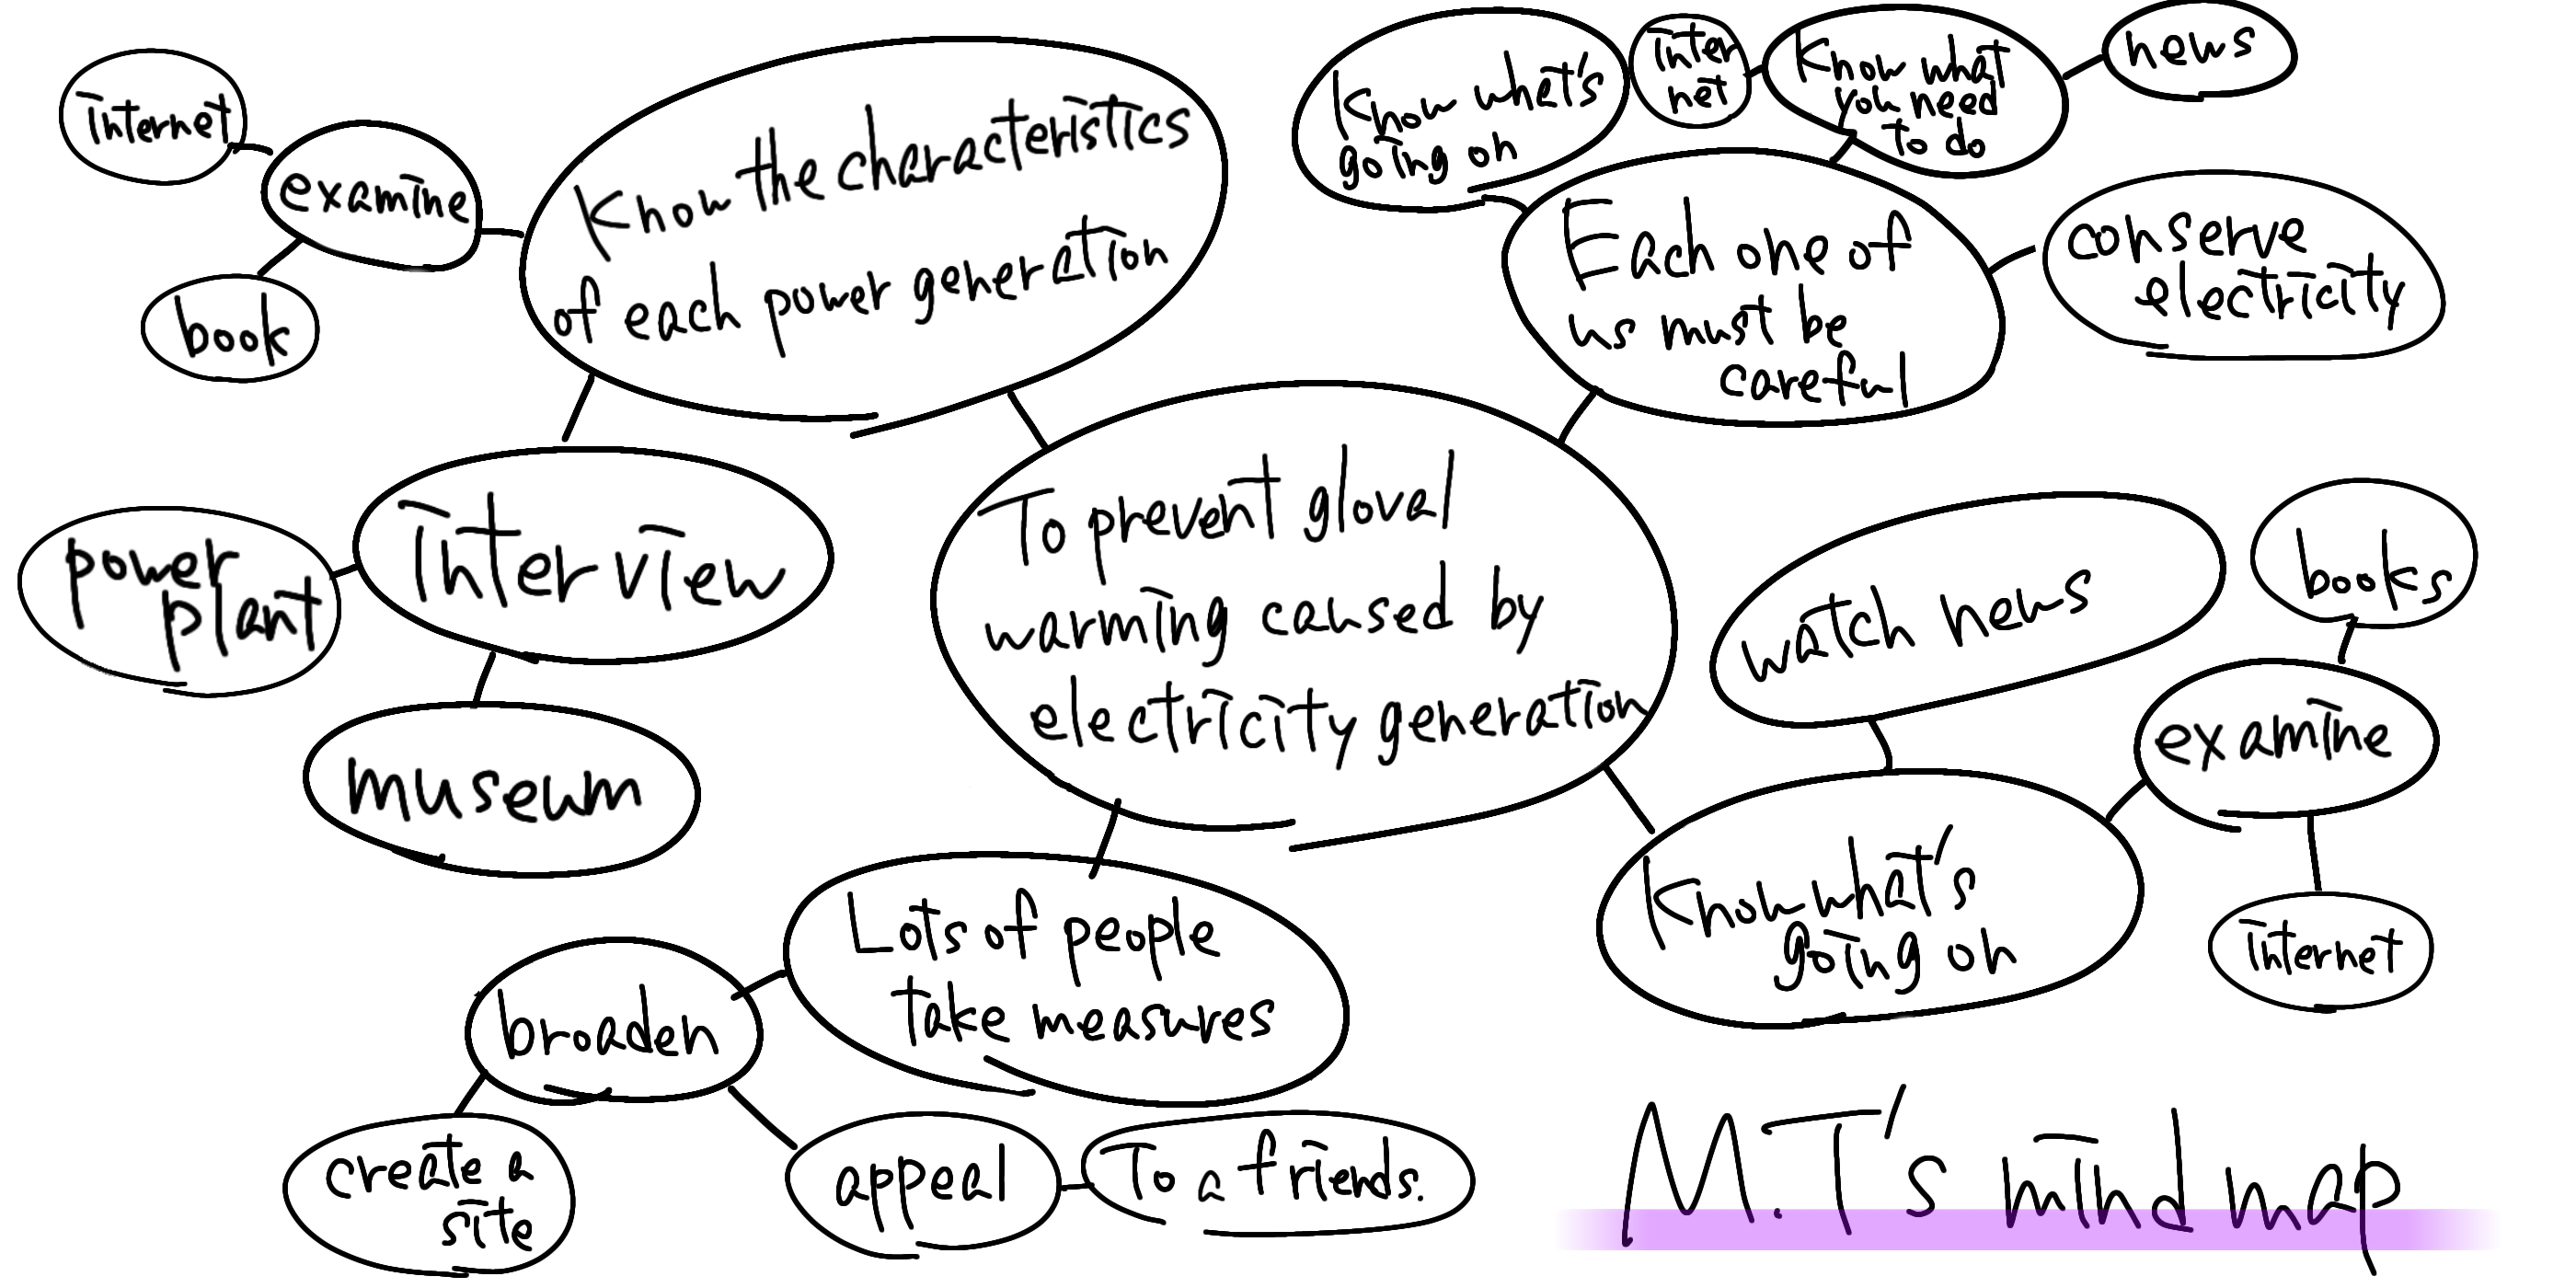 Internet
examine
book
Know the characteristics
of each power generation
Know what's
going on
Inter
net
Know what
you need
To do
news
Each one of
us must be
careful
conserve
electricity
Interview
power
plant
museum
To prevent gloval
warming caused by
electricity generation
watch news
books
examine
Know what's
going on
internet
Lots of people
take measures
broaden
create a
site
appeal
To a friends.
M.T's mind map